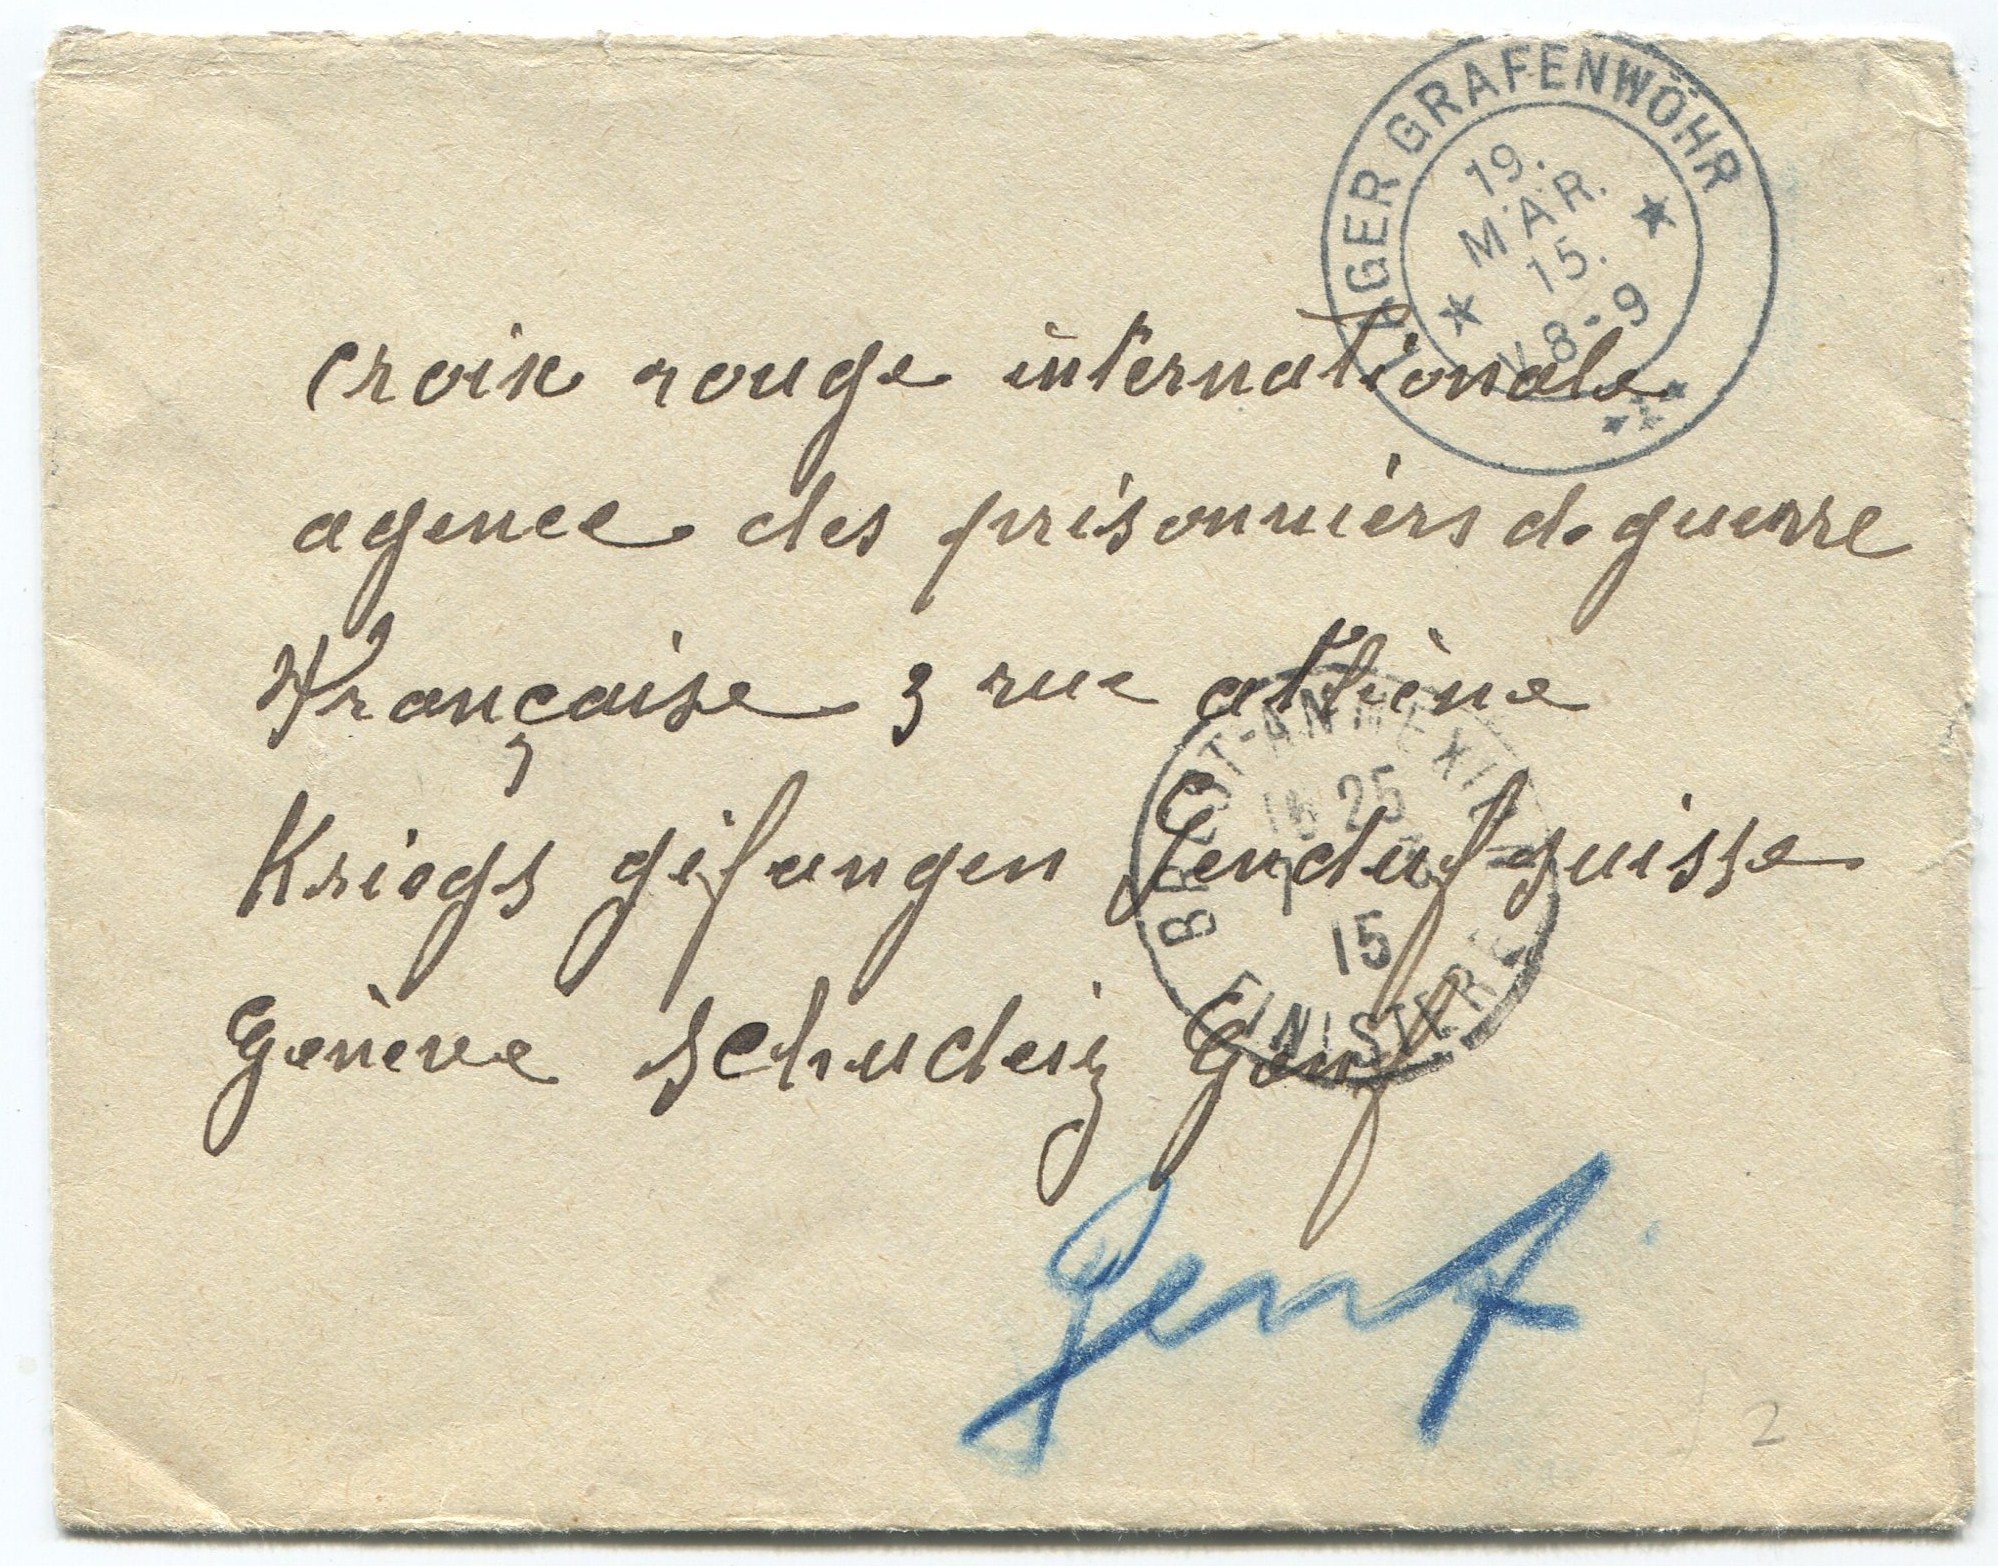 LAGER GRAFENWÖHR
19.
MÄR.
15.
V. 8-9
croix rouge internationale
agence des prisonniers de guerre
Française 3 rue athène
Kriegs gefangen suisse
Genève Genf
BREST-ANNEXE
25
15
FINISTERE
Genf
2